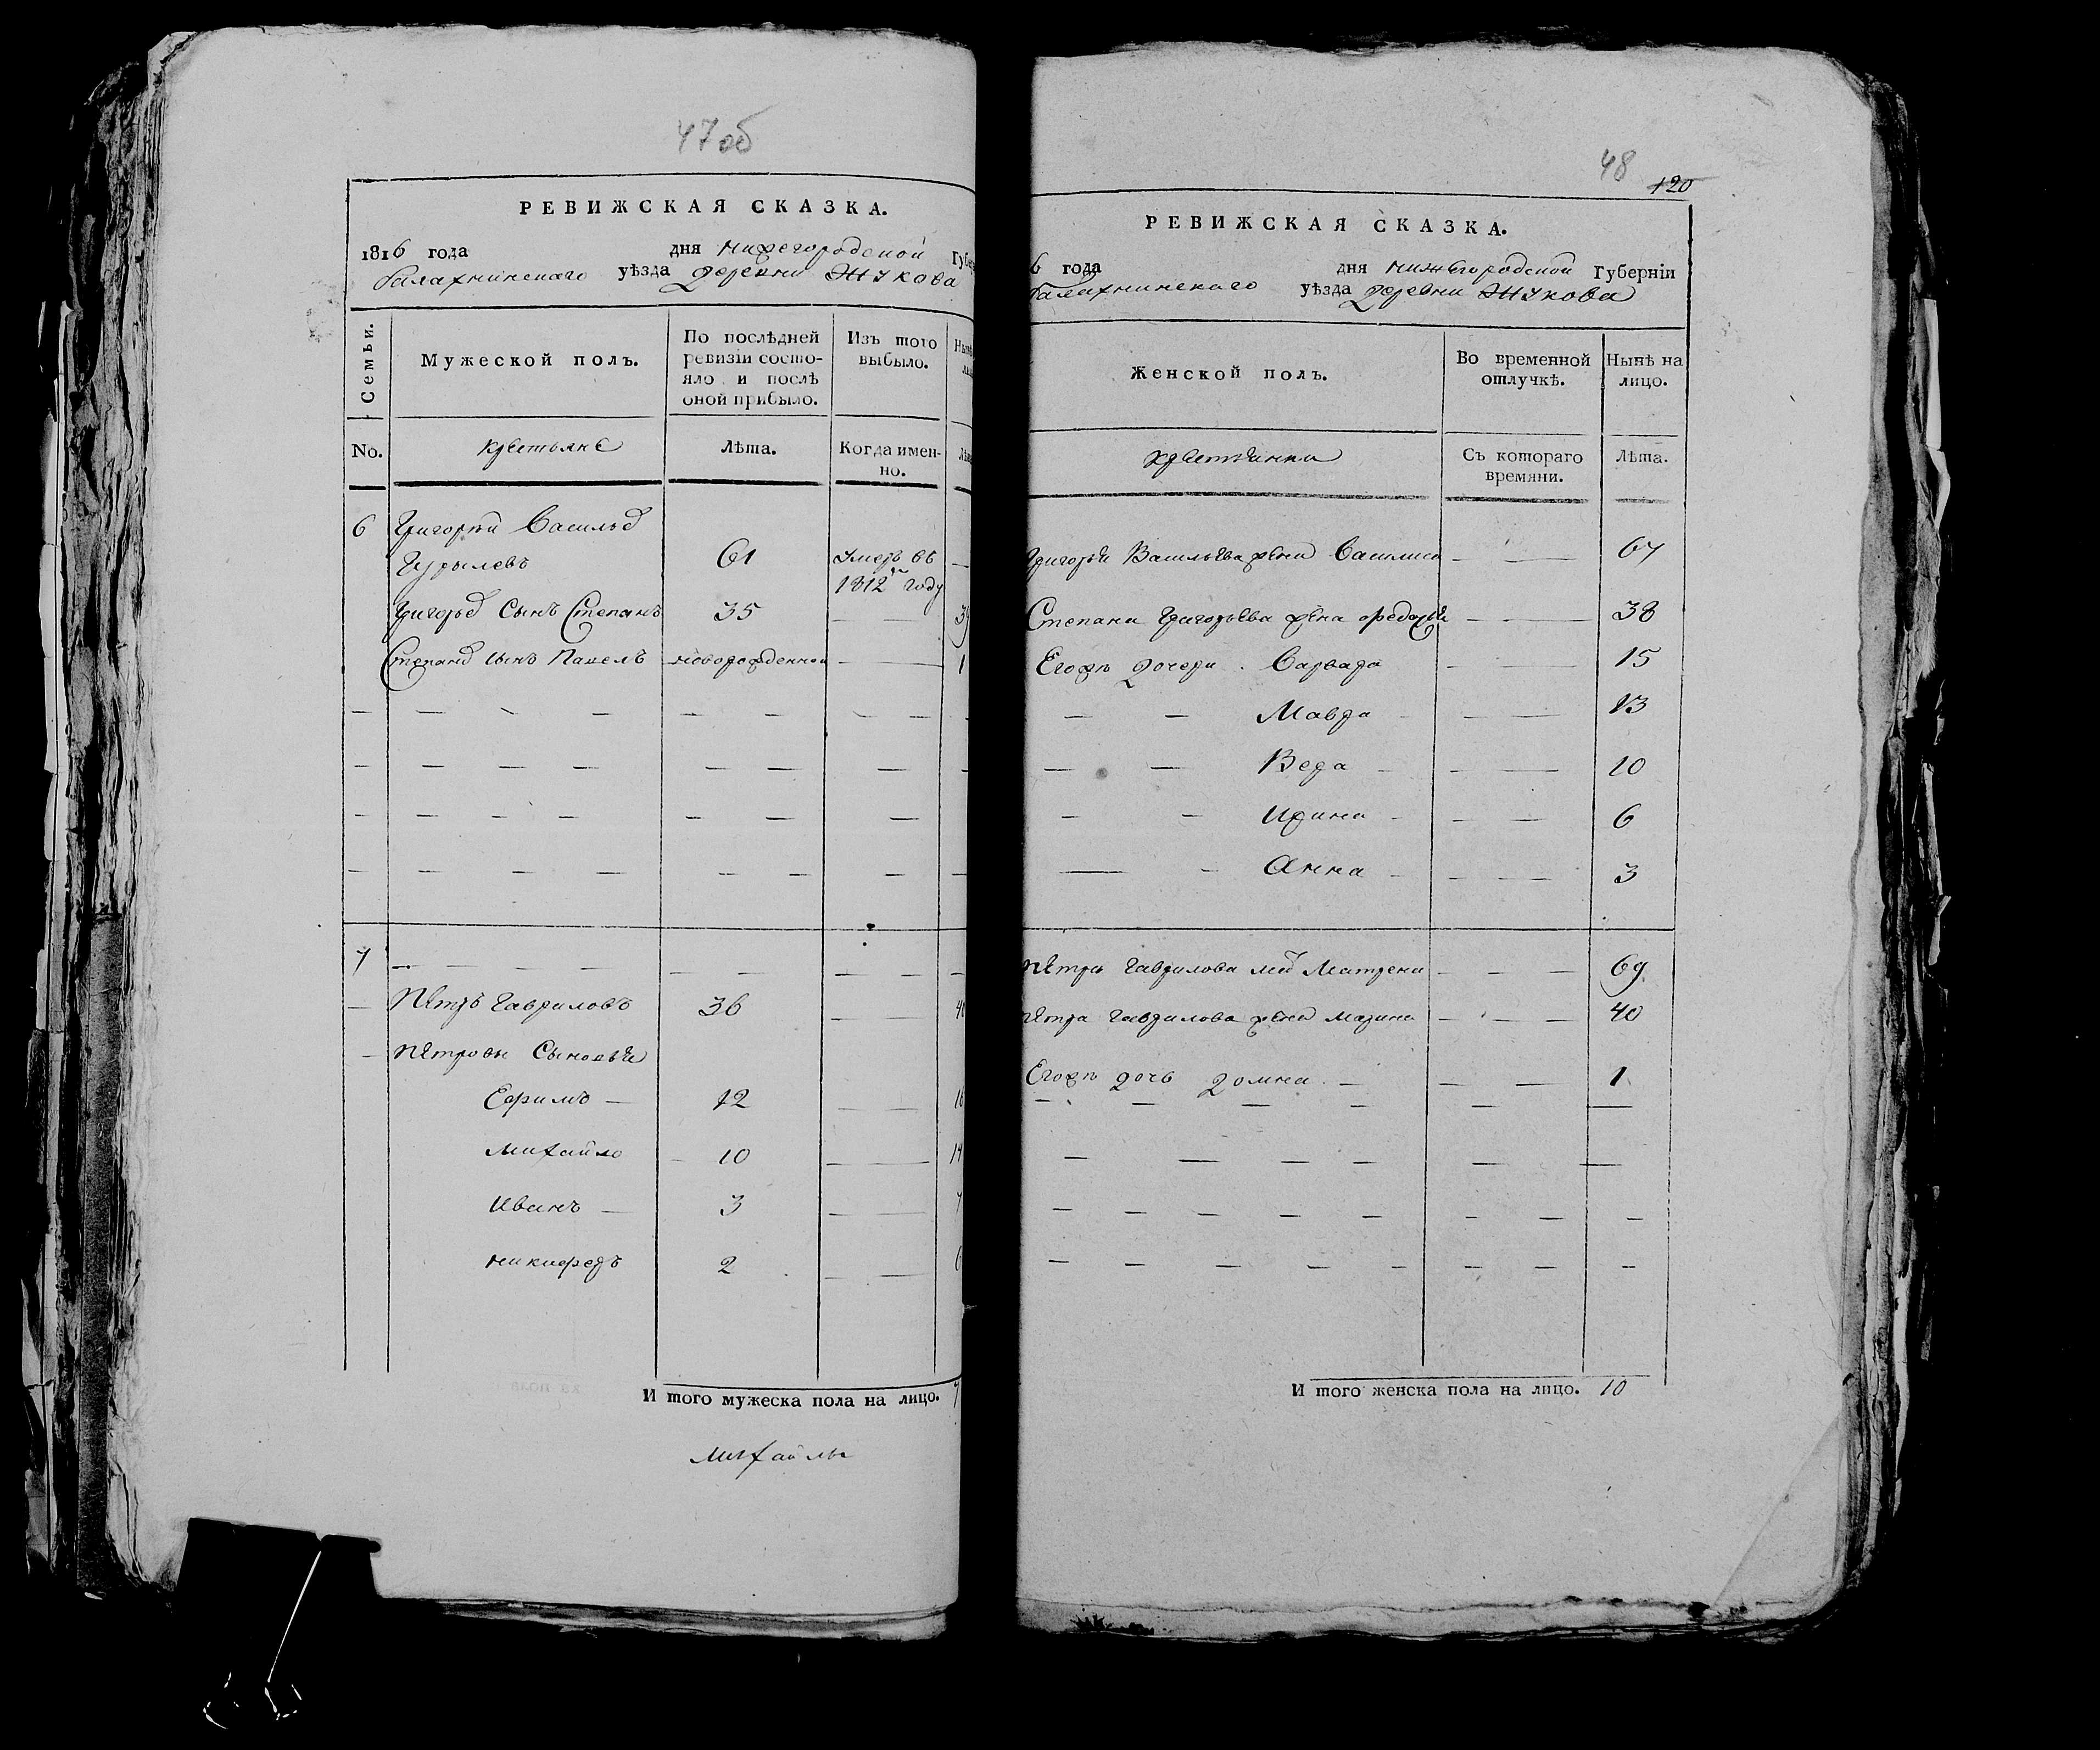 47об
РЕВИЖСКАЯ СКАЗКА.
1816 года дня нижегородской Губер
балахнинскаго уѣзда деревни Жукова
Семьи. Мужеской полъ. По послѣдней ревизіи состо-яло и послѣ оной прибыло. Изъ того выбыло.
No. крестьяне Лѣта. Когда имен-но.
6 Григорей Василье
Гурылевъ 61 умеръ въ
1812м году
Григорье сынъ Степанъ 35
Степана сынъ Павелъ новорожденной 1
7
Петръ Гавриловъ 36 40
Петровы сыновья
Ефимъ 12 16
Михайло 10 14
Иванъ 3 7
никифоръ 2 6
И того мужеска пола на лицо. 7
Михайлы
48
120
РЕВИЖСКАЯ СКАЗКА.
6 года дня нижегородской Губерніи
балахнинскаго уѣзда деревни Жукова
Женской полъ. Во временной отлучкѣ. Нынѣ на лицо.
крестьянки Съ котораго времяни. Лѣта.
Григорья Васильева жена Василиса 67
Степана Григорьева жена Федосья 38
Егожъ дочери Варвара 15
Мавра 13
Вера 10
Ирина 6
Анна 3
Петра Гаврилова мать Матрена 69
Петра Гаврилова жена Марина 40
Егожъ дочь домна 1
И того женска пола на лицо. 10